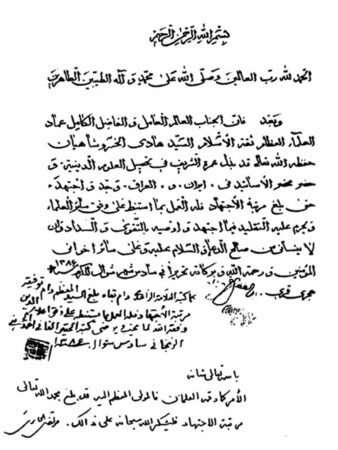 بسم الله الرحمن الرحيم
الحمد لله رب العالمين وصلى الله على محمد و آله الطيبين الطاهرين
وبعد فان الجناب العالم العامل و الفاضل الكامل عماد
العلماء العظام ثقة الاسلام السيد هادى الخسروشاهيان
حفظه الله تعالى قد بذل عمره الشريف فى تحصيل العلوم الدينية و
حضر محضر الأساتيد فى ايران و العراق وجد و اجتهد
حتى بلغ مرتبة الاجتهاد فله العمل بما استنبط على وفق آثار العلماء
ويحرم عليه التقليد فيما اجتهد و اوصيه بالتقوى و السداد وان
لا ينسانى من صالح الدعاء و السلام عليه و على سائر اخوانى
المؤمنين و رحمة الله و بركاته تحريراً فى سادس شهر شوال المكرم ١٣٨٤
ما كتبه العلامة دام بقاه بلغ السيد المعظم دام توفيقه
مرتبة الاجتهاد وله العمل بما استنبطه على
وفقه الله لما يحبه و يرضى كتبه الفانى
الزنجانى سادس شوال ١٣٨٤
باسمه تعالى شأنه
الأمر كما رقمه العلمان فالمولى المعظم اليه قد بلغ بحمد الله تعالى
مرتبة الاجتهاد فليشكر الله سبحانه على ذالك مرتضى